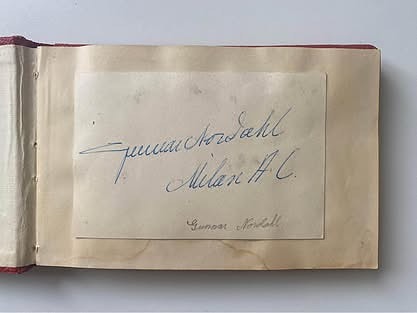 Gunnar Nordahl
Milan A.C.
Gunnar Nordall